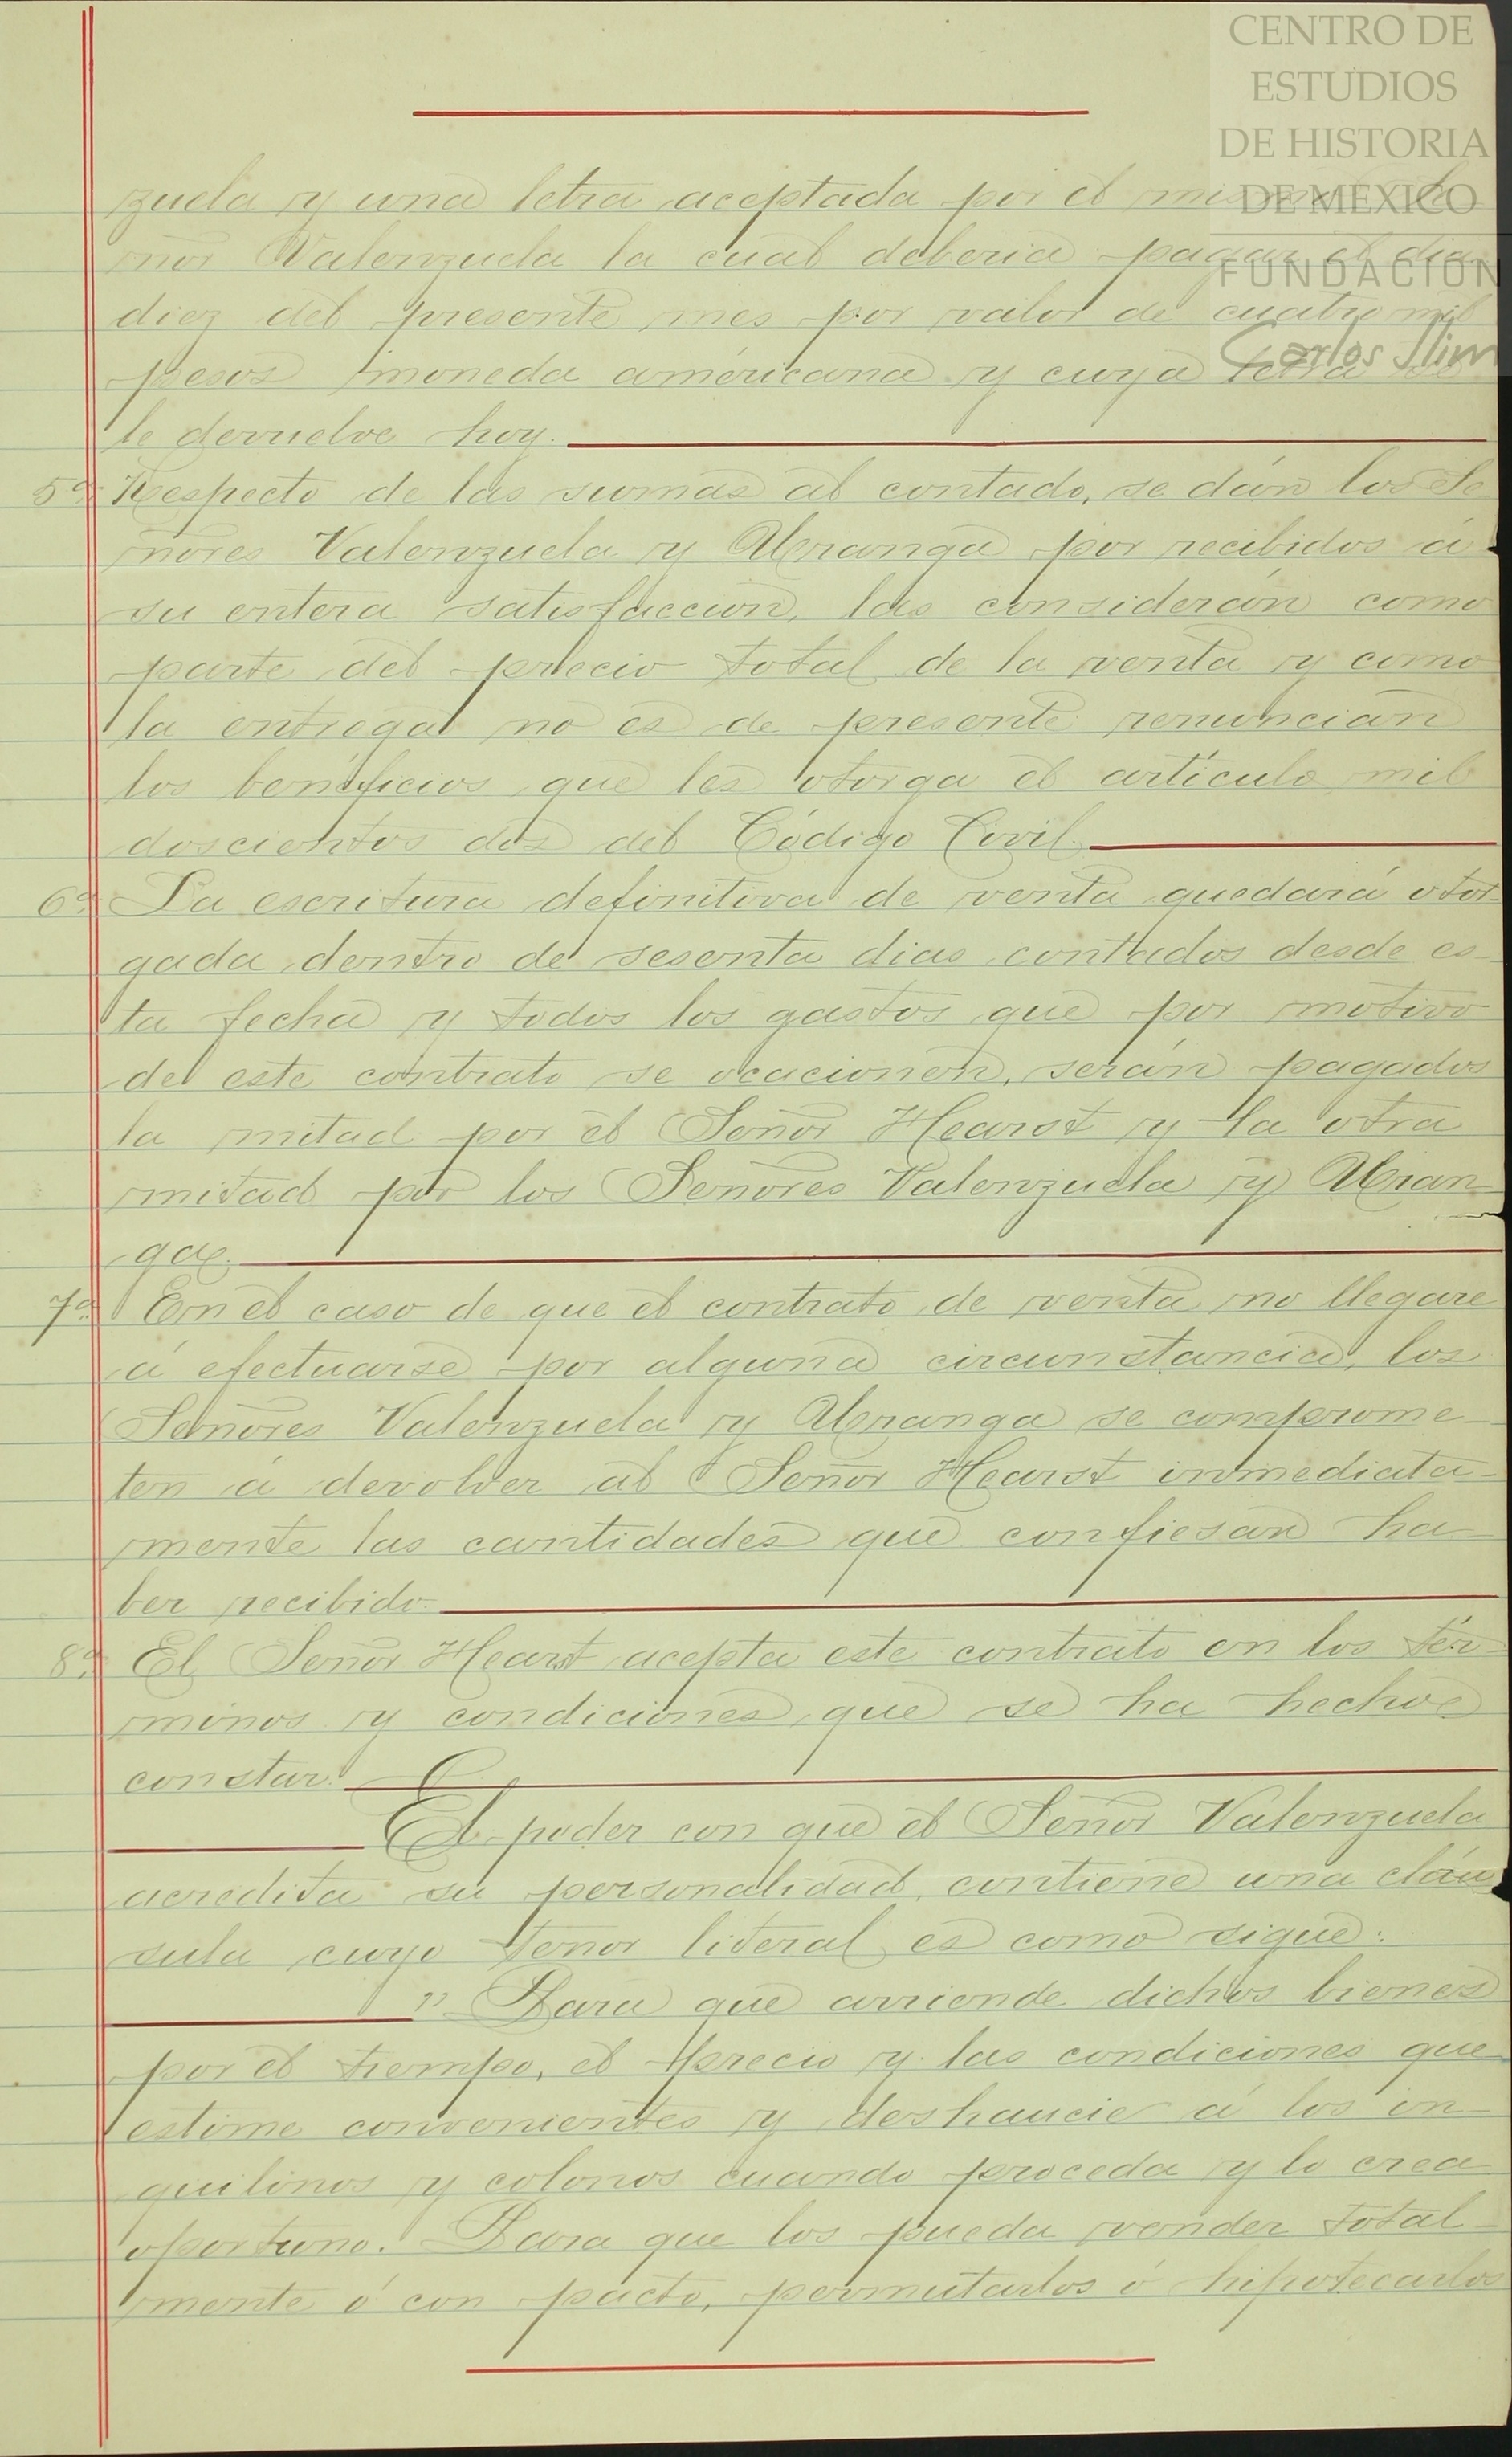 CENTRO DE
ESTUDIOS
DE HISTORIA
DE MÉXICO
FUNDACIÓN
Carlos Slim
zuela y una letra aceptada por el mismo Se
ñor Valenzuela la cual deberia pagar el dia
diez del presente mes por valor de cuatro mil
pesos moneda américana y cuya letra se
le devuelve hoy.
5a. Respecto de las sumas al contado, se dán los Se
ñores Valenzuela y Uranga por recibidos á
su entera satisfaccion, las consideran como
parte del precio total de la venta y como
la entrega no es de presente renuncian
los beneficios que les otorga el artículo mil
doscientos dos del Código Civil.
6a. La escritura definitiva de venta quedará otor-
gada dentro de sesenta dias contados desde es-
ta fecha y todos los gastos que por motivo
de este contrato se ocacionen, serán pagados
la mitad por el Señor Hearst y la otra
mitad por los Señores Valenzuela y Uran-
ga.
7a. En el caso de que el contrato de venta no llegare
á efectuarse por alguna circunstancia, los
Señores Valenzuela y Uranga se comprome-
ten á devolver al Señor Hearst inmediata-
mente las cantidades que confiesan ha-
ber recibido.
8a. El Señor Hearst acepta este contrato en los tér-
minos y condiciones que se ha hecho
constar.
El poder con que el Señor Valenzuela
acredita su personalidad, contiene una cláu
sula cuyo tenor literal es como sigue:
" Para que arriende dichos bienes
por el tiempo, el precio y las condiciones que
estime convenientes y deshaucie á los in-
quilinos y colonos cuando proceda y lo crea
oportuno. Para que los pueda vender total-
mente ó con pacto, permutarlos ó hipotecarlos